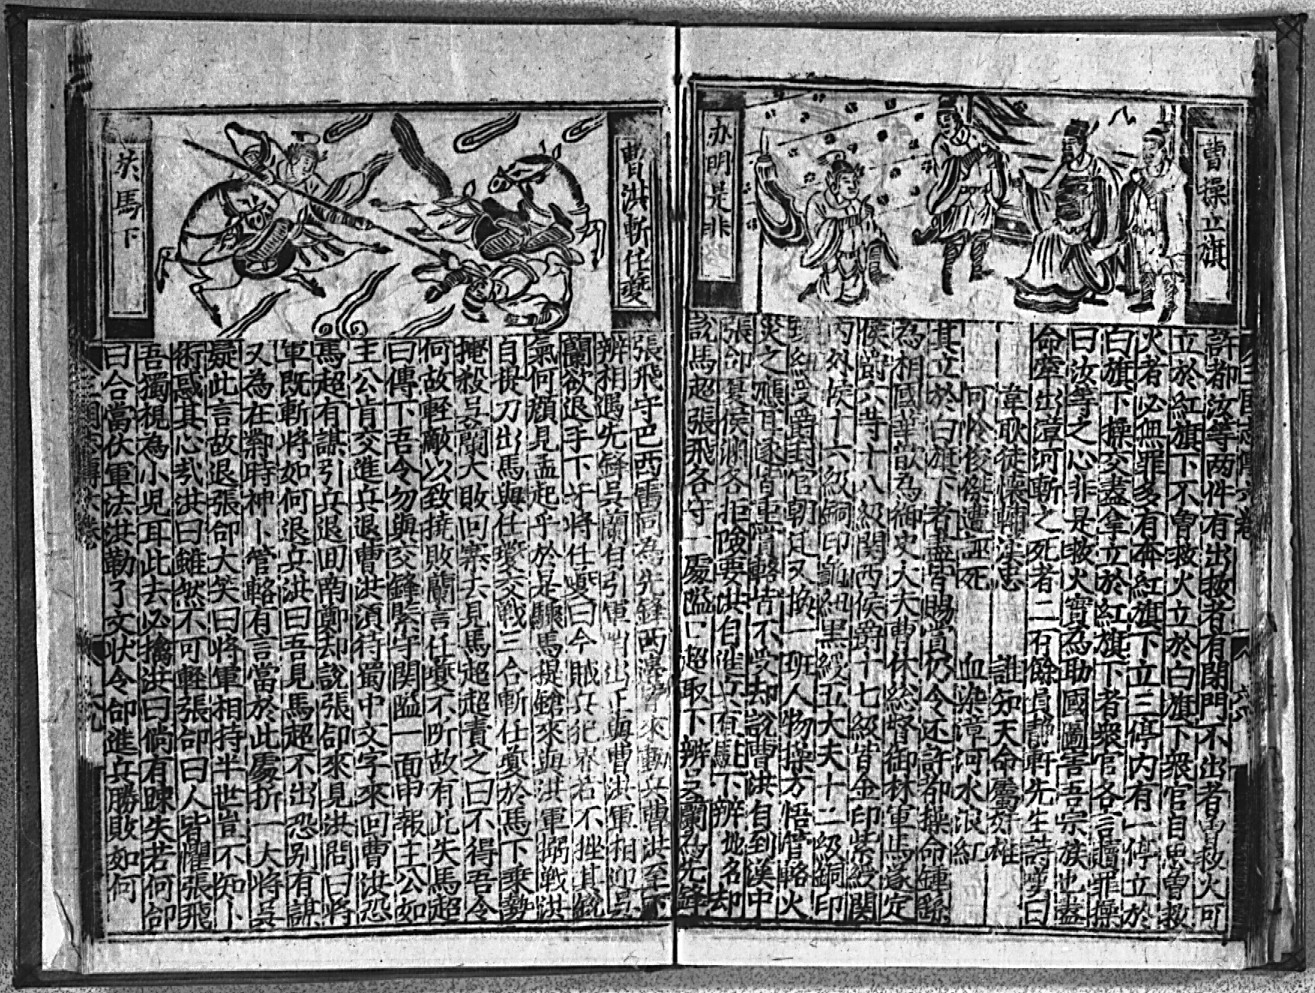 曹操立旗
办明是非
許都汝等两件有出救者有閉門不出者曾救火可
立於紅旗下不曾救火立於白旗下衆官自思曾救
火者必無罪多有奔紅旗下立三停内有一停立於
白旗下操交盡拿立於紅旗下者衆官各言赦罪操
曰汝等之心非是救火實為助國圖害吾宗族也盡
命牽出漳河斬之死者二百餘員静軒先生詩嘆曰
韋耿徒懷輔漢忠 誰知天命屬奸雄
可怜俊傑遭誣死 血染漳河水浪紅
其立於白旗下者盡皆賜賞仍令还許都操命鍾繇
為相國華歆為御史大夫曹休総督御林軍馬遂定
侯爵六等十八級関西侯爵十七級皆金印紫綬関
内外侯十六級銅印龜紐黑綬五大夫十二級銅印
環紐受爵封官朝廷又換一班人物操方悟管輅火
災之驗耳遂皆重賞輅皆不受却說曹洪自到漢中
張郃夏侯淵各拒險要洪自進兵有馬下辨地名却
說馬超張飛各守一處隘口超取下辨吳蘭為先鋒
曹洪斬任夔
於馬下
張飛守巴西雷同為先鋒西邊淨來動兵曹洪至下
辨相遇先鋒吳蘭自引軍哨出正與曹洪軍相迎吳
蘭欲退手下牙將任夔曰今賊兵犯界若不挫其銳
氣何顔見孟起乎於是驟馬提鎗來與洪軍搦戰洪
自提刀出馬與任夔交戰三合斬任夔於馬下乗勢
掩殺吳蘭大敗回寨去見馬超超責之曰不得吾令
何故輕敵以致撓敗蘭言任夔不听故有此失馬超
曰傳下吾令勿與交鋒緊守関隘一面申報主公如
主公肯交進兵退曹洪須待蜀中文字來回曹洪恐
馬超有謀引兵退囬南鄭却說張郃來見洪問曰將
軍既斬將如何退兵洪曰吾見馬超不出恐别有謀
又為在鄴時神卜管輅有言當於此處折一大將吳
疑此言故退張郃大笑曰將軍相持半世豈不知卜
術惑其心哉洪曰雖然不可輕張郃曰人皆懼張飛
吾獨視為小兒耳此去必擒洪曰倘有踈失若何郃
曰合當伏軍法洪勒了文狀令郃進兵勝敗如何